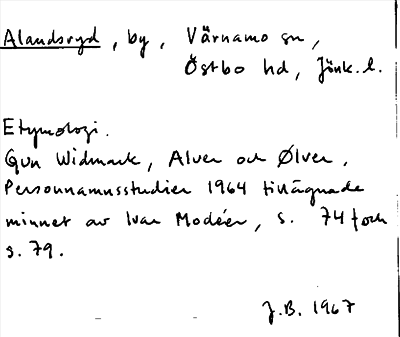 Alandsryd, by, Värnamo sn,
Östbo hd, Jönk. l.
Etymologi.
Gun Widmark, Alver och Ølver,
Personnamnsstudier 1964 tillägnade
minnet av Ivar Modéer, s. 74 f och
s. 79.
J.B. 1967